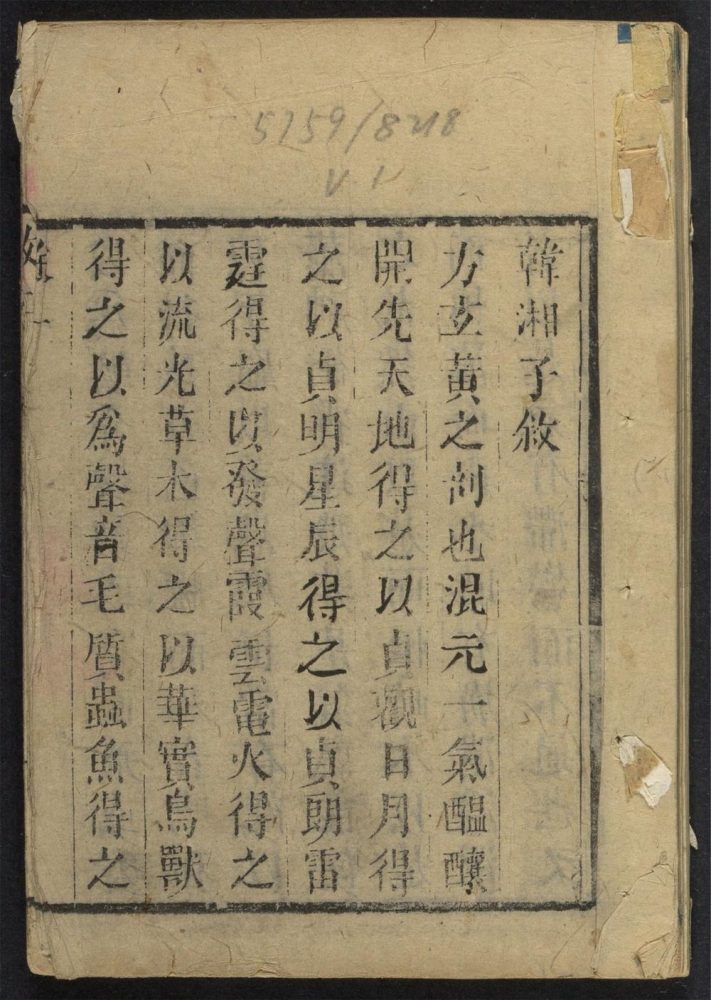 5759/8218
V.1
韓湘子敘
方玄黃之剖也混元一氣醞釀
開先天地得之以貞觀日月得
之以貞明星辰得之以貞朗雷
霆得之以發聲霞雲電火得之
以流光草木得之以華實鳥獸
得之以爲聲音毛質蟲魚得之